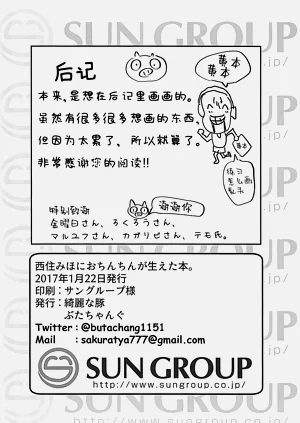 SUN GROUP
http://www.sungroup.co.jp/
后记
本来,是想在后记里画画的。
虽然有很多很多想画的东西。
但因为太累了，所以就算了。
非常感谢您的阅读!!
黄本
黄本
练习
怎么画
乳头
特别致谢
谢谢你
金曜日さん、ろくろうさん、
マルユフさん、カガリビさん、テモ氏。
西住みほにおちんちんが生えた本。
2017年1月22日発行
印刷：サングループ様
発行：綺麗な豚
ぶたちゃんぐ
Twitter：@butachang1151
Mail：sakuratya777@gmail.com
SUN GROUP
http://www.sungroup.co.jp/
SUN GROUP
http://www.sungroup.co.jp/